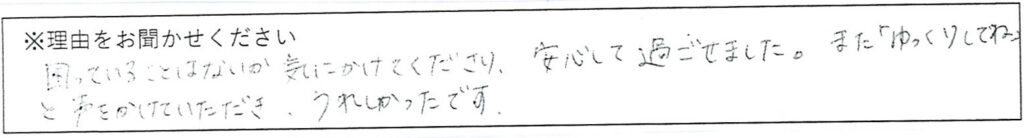 ※理由をお聞かせください
困っていることはないか気にかけてくださり、安心して過ごせました。また「ゆっくりしてね」
と声をかけていただき、うれしかったです。